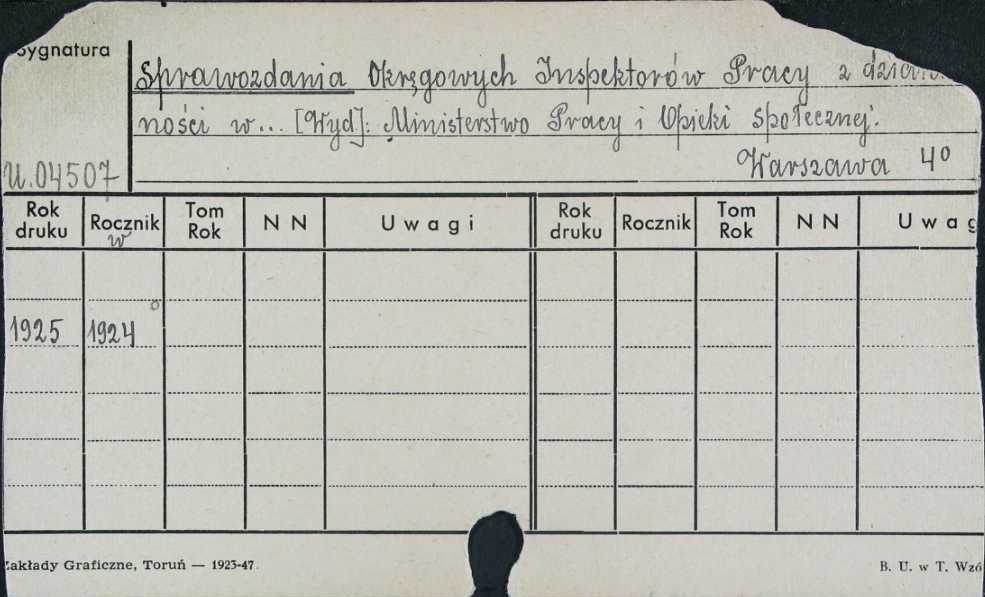 Sygnatura
Sprawozdania Okręgowych Inspektorów Pracy z
ności w... [Wyd]: Ministerstwo Pracy i Opieki społecznej.
Warszawa 4º
U.04507
Rok druku Rocznik Tom Rok N N Uwagi Rok druku Rocznik Tom Rok N N Uwag
w
1925 1924
Zakłady Graficzne, Toruń — 1923-47 B. U. w T. Wzó